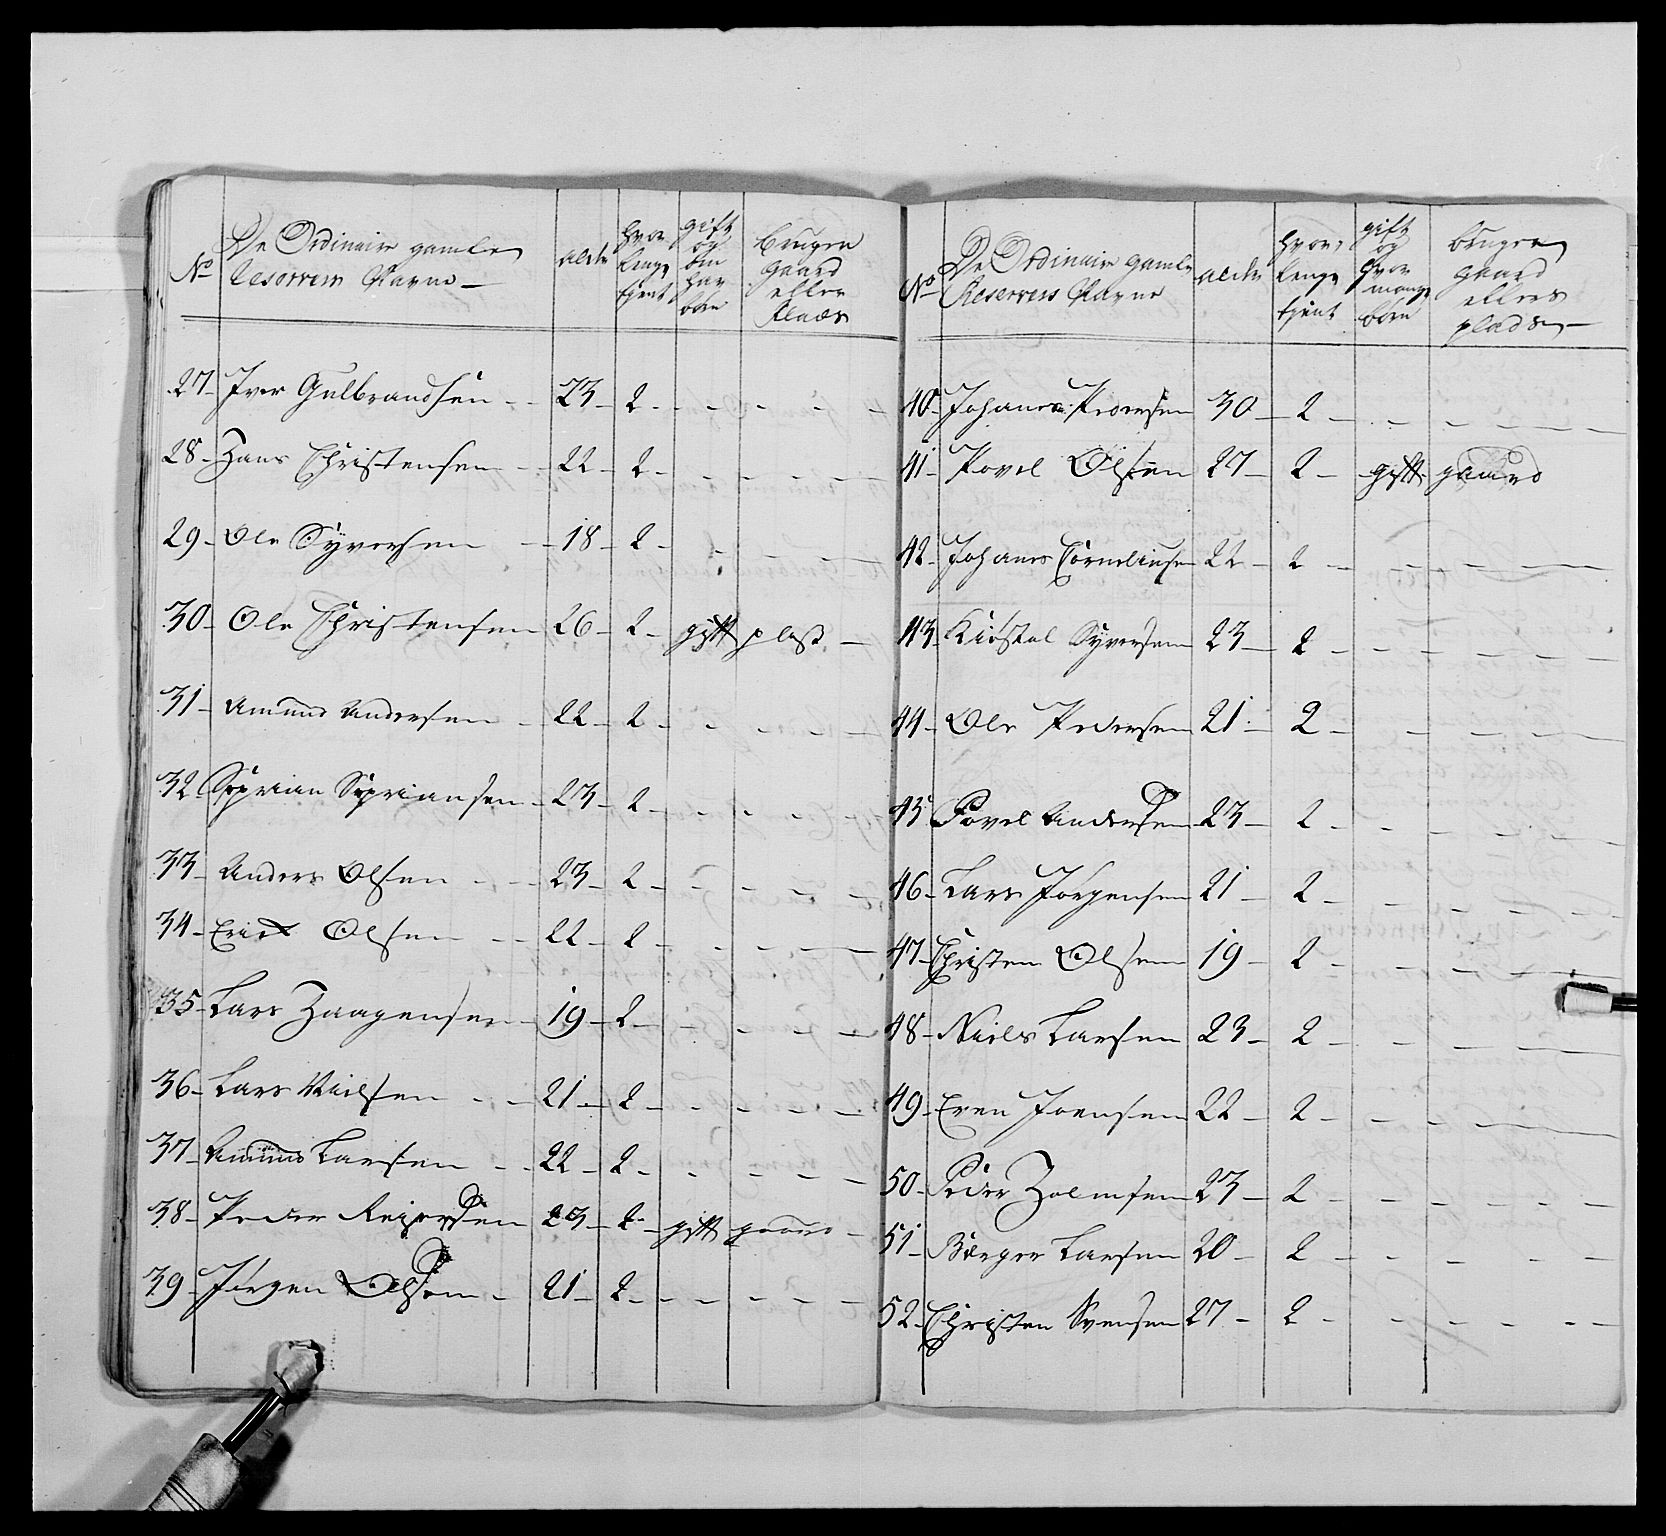 No
De Ordinaire gamle
Reserven Nafne
alder
hvor
lenge
tient
gift
og
om
har
børn
bruger
gaard
eller
Plads
27 Iver Gulbrandsen 23 2
28 Hans Christensen 22 2
29 Ole Syversen 18 2
30 Ole Christensen 26 2 gift plass
31 Amund Andersen 22 2
32 Syprian Sypriansen 23 2
33 Anders Olsen 23 2
34 Erick Olsen 22 2
35 Lars Haagensen 19 2
36 Lars Nielsen 21 2
37 Amund Larsen 22 2
38 Peder Reiersen 23 2 gift gaard
39 Jørgen Olsen 21 2
No
De Ordinaire gamle
Reservers Nafne
alder
hvor
lenge
tient
gift
og
hvor
mange
børn
bruger
gaard
ellers
plads
40 Johanes Pedersen 30 2
41 Povel Olsen 27 2 gift gaard
42 Johanes Corneliusen 22 2
43 Kiøstel Syversen 23 2
44 Ole Pedersen 21 2
45 Povel Andersen 23 2
46 Lars Jørgensen 21 2
47 Christen Olsen 19 2
48 Niels Larsen 23 2
49 Even Joensen 22 2
50 Peder Holmsen 23 2
51 Børger Larsen 20 2
52 Christen Svensen 27 2